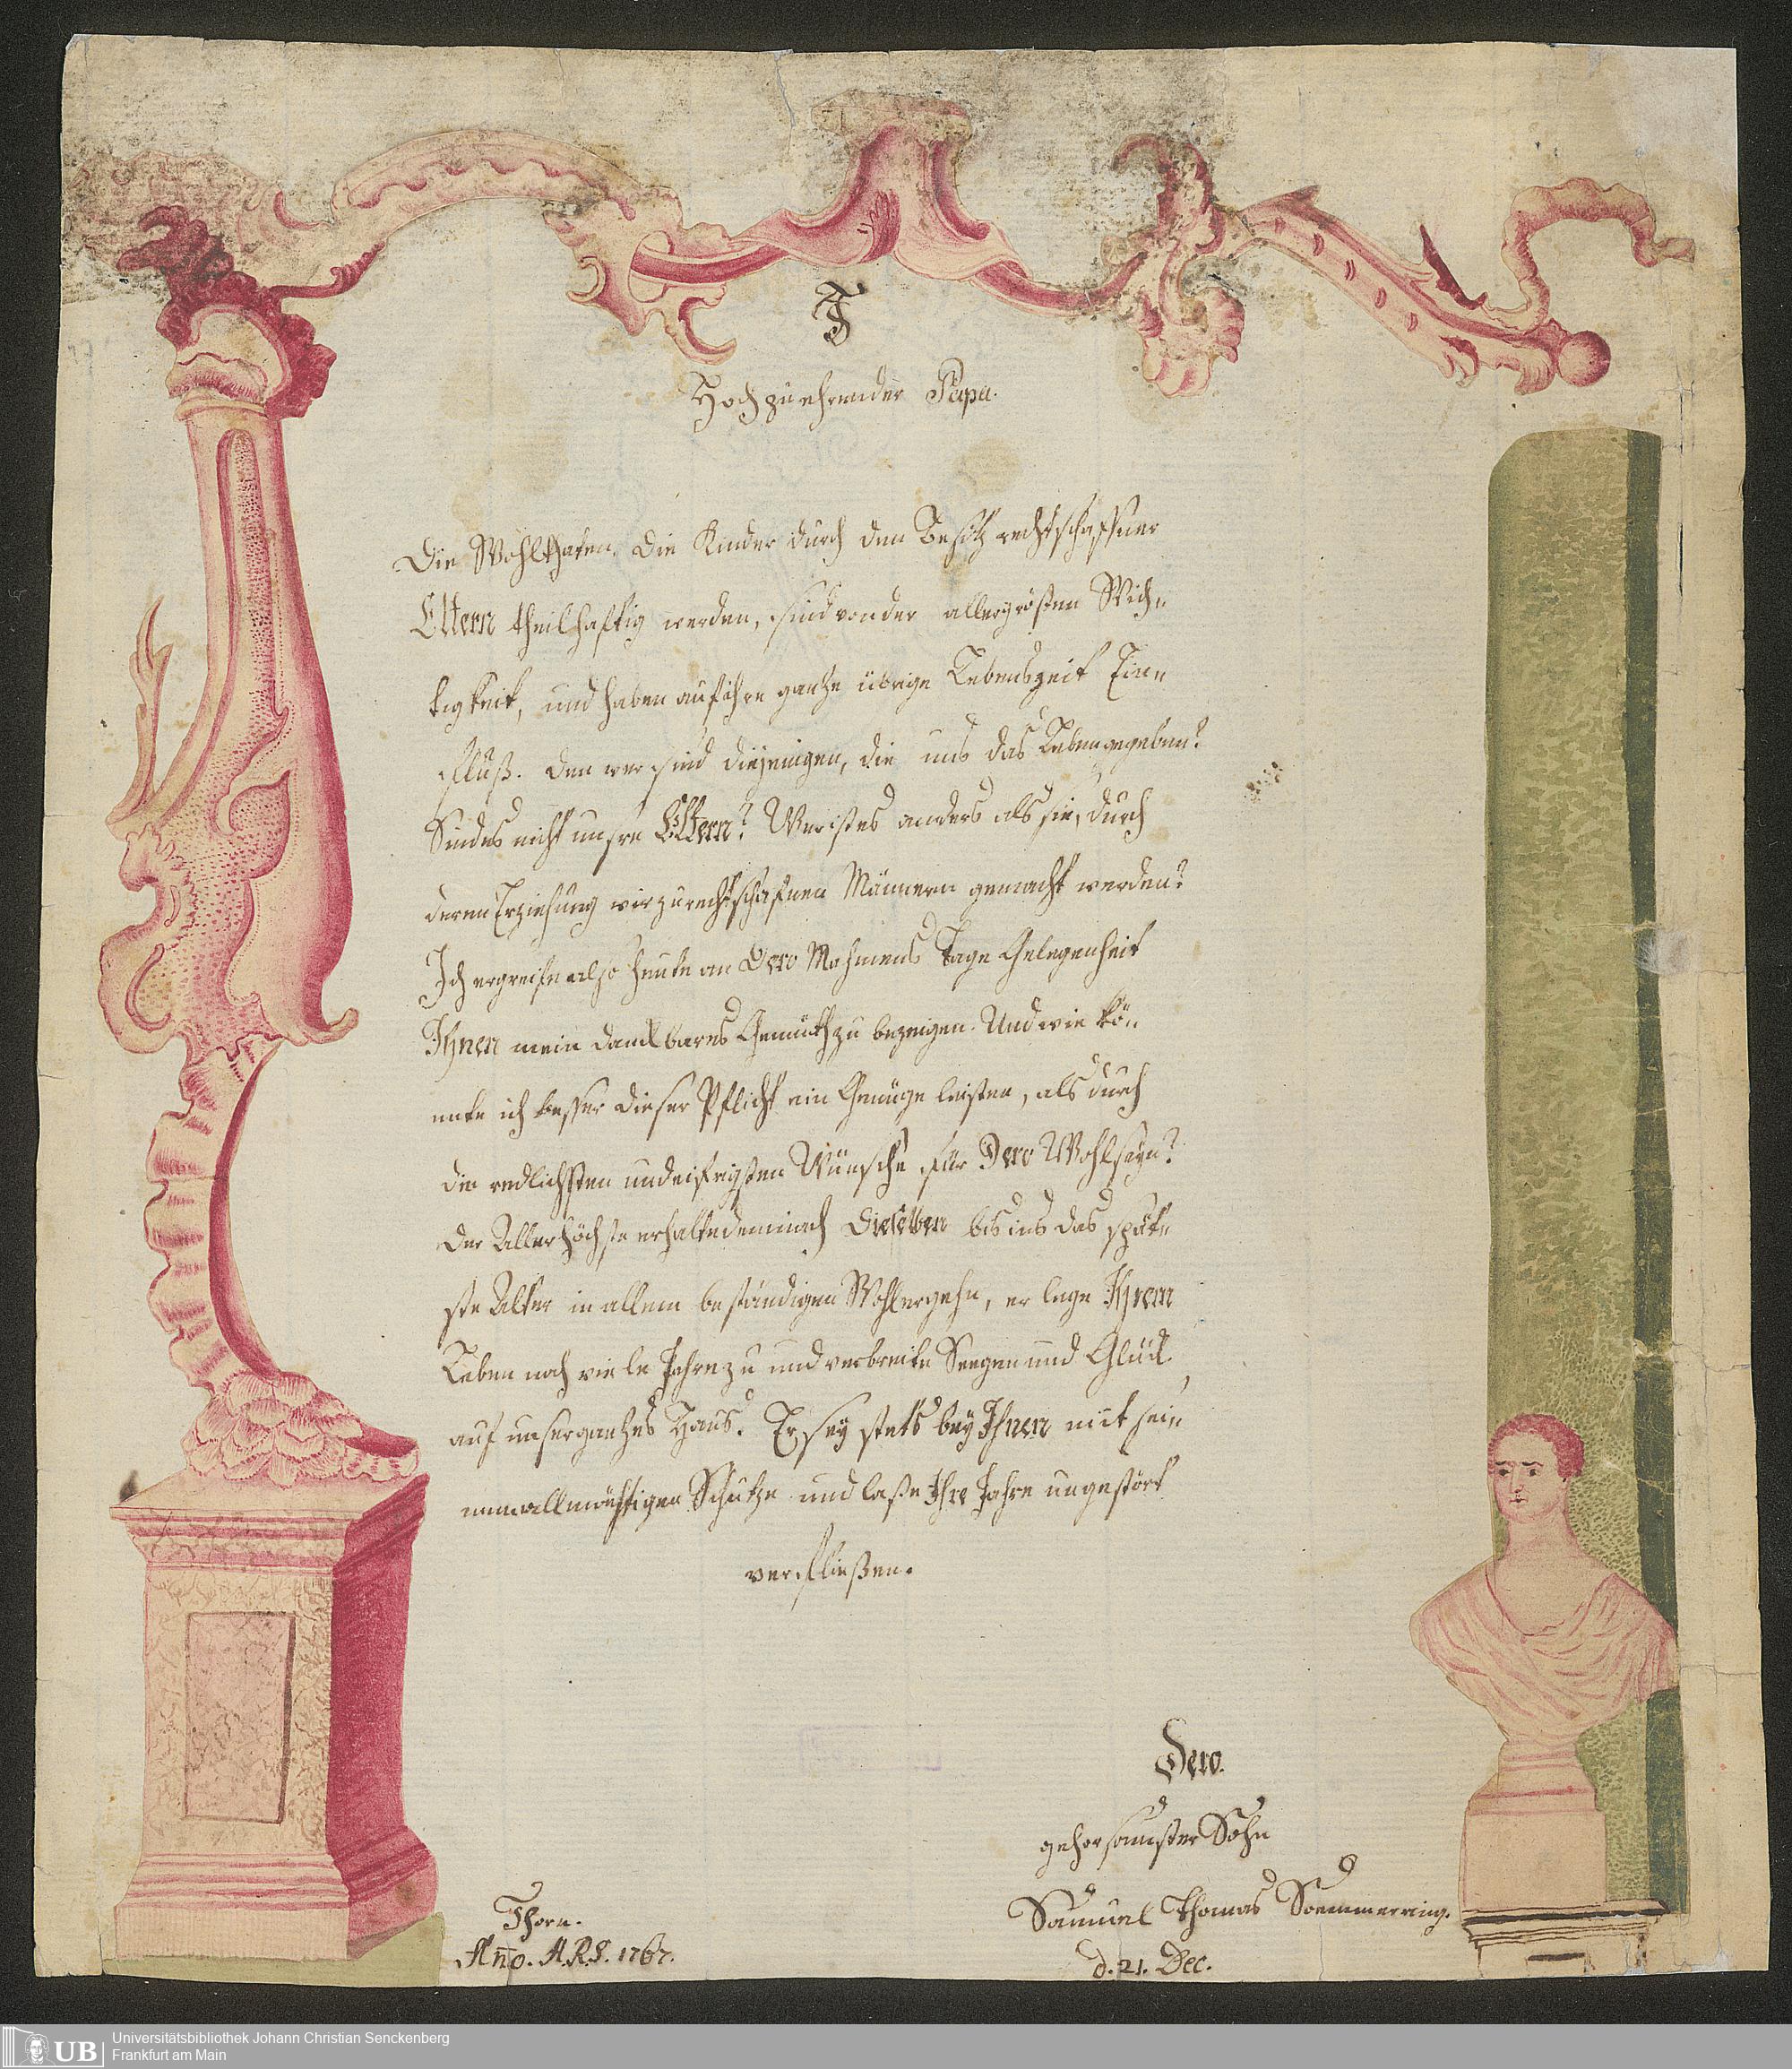 Hochzuehrender Papa.
Die Wohlthaten, die Kinder durch den Besitz rechtschaffner
Eltern theilhaftig werden, sind von der allergrösten Wich-
tigkeit, und haben auf ihre gantze übrige Lebenszeit Ein-
fluß. Den wer sind diejenigen, die uns das Leben gegeben?
Sind es nicht unsre Eltern? Wer ist es anders als sie, durch
deren Erziehung wir zu rechtschafnen Männern gemacht werden?
Ich ergreife also heute an Dero Nahmens Tage Gelegenheit
Ihnen mein danckbares Gemüth zu bezeigen. Und wie kö-
nnte ich besser dieser Pflicht ein Genüge leisten, als durch
die redlichsten und eifrigsten Wünsche für Dero Wohlseyn?
Der Allerhöchste erhalte demnach Dieselben bis ins das spät-
ste Alter in allem beständigen Wohlergehn, er lege Ihrem
Leben noch viele Jahre zu und verbreite Seegen und Glück
auf unser gantzes Haus. Er sey stets bey Ihnen mit sei-
nem allmächtigen Schutze und laße Ihre Jahre ungestört
verfließen.
Dero.
gehorsamster Sohn
Samuel Thomas Soemmerring.
d. 21. Dec.
Thorn.
Año. A.R.S. 1767.
UB
Universitätsbibliothek Johann Christian Senckenberg
Frankfurt am Main